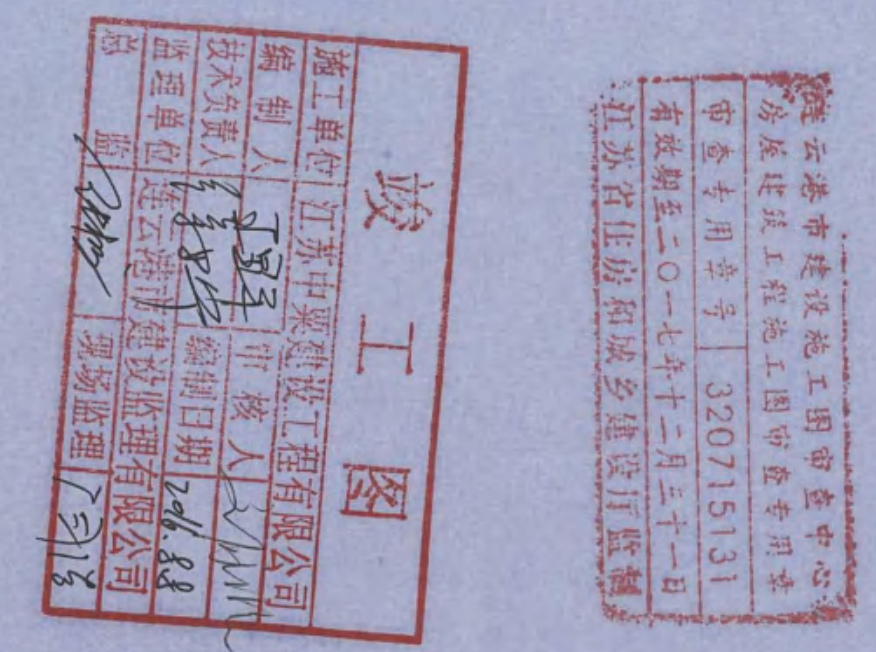 竣工图
施工单位 江苏中粱建设工程有限公司
编制人 审核人
技术负责人 编制日期 2016.8.8
监理单位 连云港市建设监理有限公司
总监 现场监理
连云港市建设施工图审查中心
房屋建筑工程施工图审查专用章
审查专用章号 320715131
有效期至二〇一七年十二月三十一日
江苏省住房和城乡建设厅监制